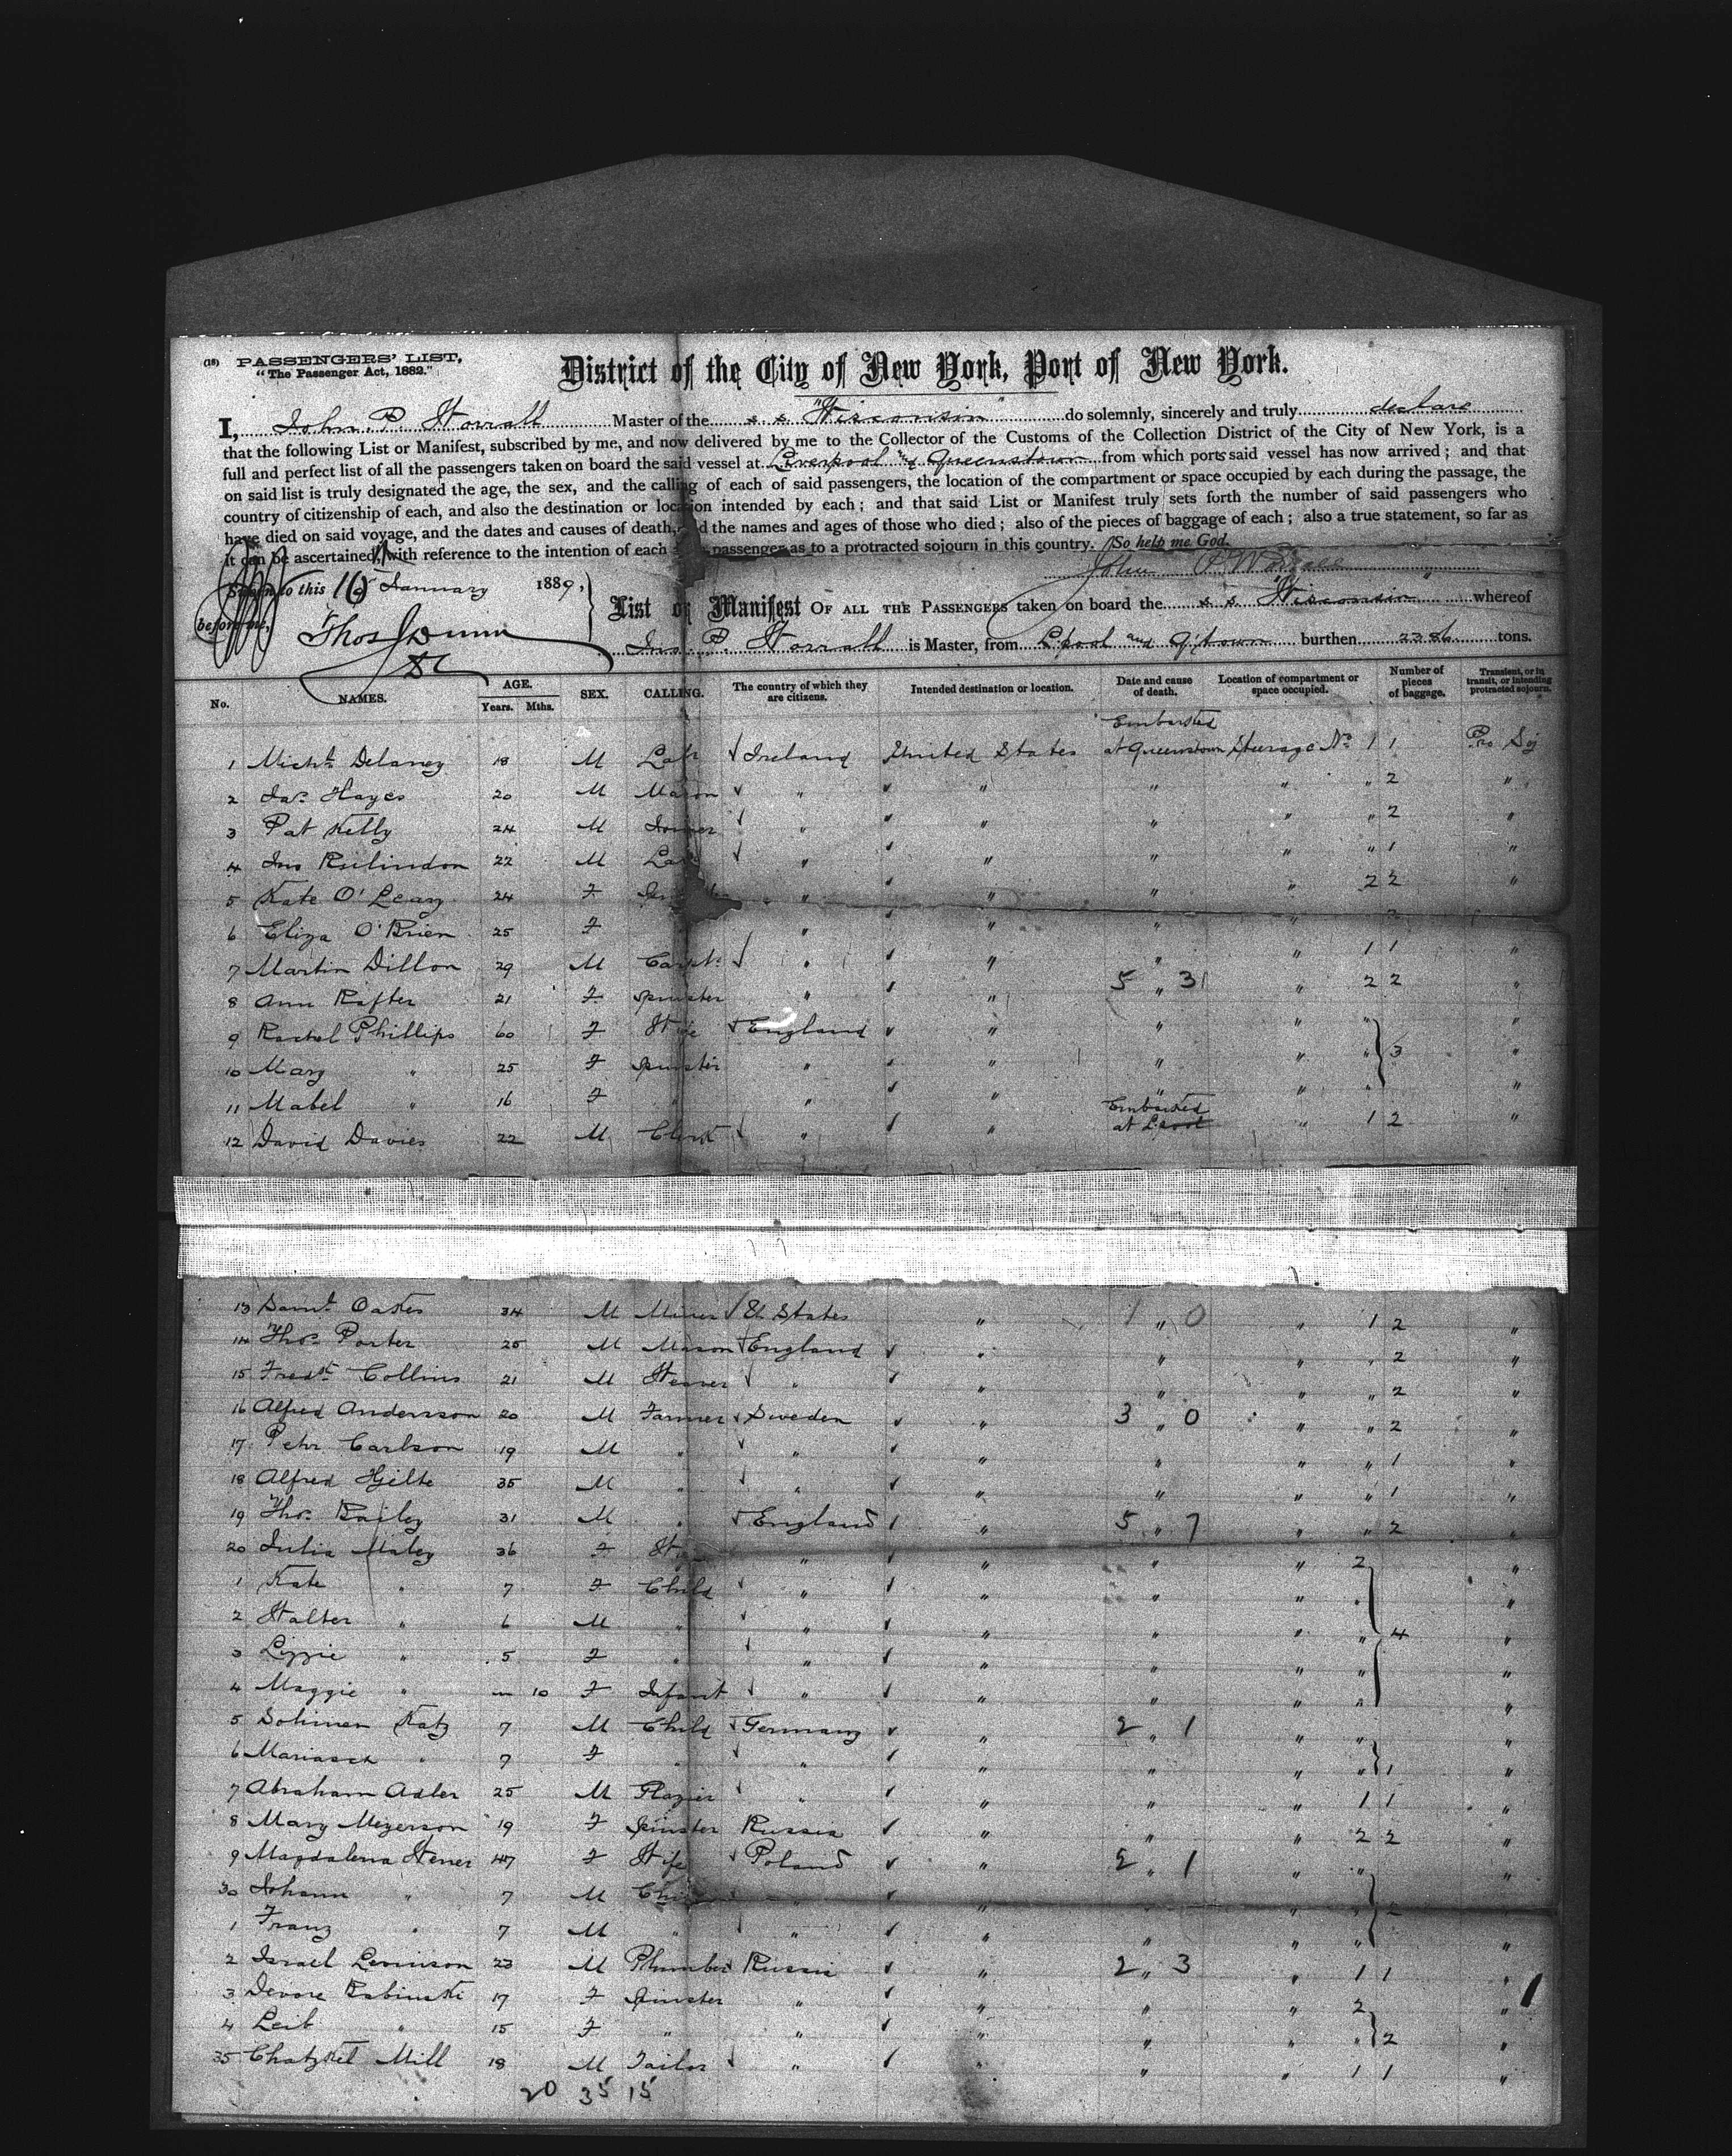 (18) PASSENGERS' LIST,
"The Passenger Act, 1882."
District of the City of New York, Port of New York.
I, John. P. Worrall Master of the s. s. "Wisconsin" do solemnly, sincerely and truly declare
that the following List or Manifest, subscribed by me, and now delivered by me to the Collector of the Customs of the Collection District of the City of New York, is a
full and perfect list of all the passengers taken on board the said vessel at Liverpool and Queenstown from which ports said vessel has now arrived; and that
on said list is truly designated the age, the sex, and the calling of each of said passengers, the location of the compartment or space occupied by each during the passage, the
country of citizenship of each, and also the destination or location intended by each; and that said List or Manifest truly sets forth the number of said passengers who
have died on said voyage, and the dates and causes of death, and the names and ages of those who died; also of the pieces of baggage of each; also a true statement, so far as
it can be ascertained, with reference to the intention of each passenger as to a protracted sojourn in this country. So help me God.
John P Worrall
Sworn to this 16 January 1889,
before me,
Thos J Dunn
DC
List or Manifest OF ALL THE PASSENGERS taken on board the s. s. "Wisconsin" whereof
Jno. P. Worrall is Master, from L'pool and Q'town burthen 2386 tons.
No. NAMES. AGE. Years. Mths. SEX. CALLING. The country of which they are citizens. Intended destination or location. Date and cause of death. Location of compartment or space occupied. Number of pieces of baggage. Transient, or in transit, or intending protracted sojourn.
1 Michl. Delaney 18 M Labr Ireland United States Embarked at Queenstown Steerage No. 1 1 Pro Soj
2 Jas. Hayes 20 M Mason " " " " " 2 "
3 Pat Kelly 24 M Joiner " " " " " 2 "
4 Jno 22 M Lab " " " " " 1 "
5 Kate O'Leary 24 F Spinster " " " " 2 2 "
6 Eliza O'Brien 25 F " " " "
7 Martin Dillon 29 M Carpt. " " " " 1 1 "
8 Ann Rafter 21 F Spinster " 5 " 31 " 2 2 "
9 Rachel Phillips 60 F Wife England " " " " "
10 Mary " 25 F Spinster " " " " " 3 "
11 Mabel " 16 F " " " " " " "
12 David Davies 22 M Clerk " " Embarked at L'pool " 1 2 "
13 Saml. Oakes 34 M Miner U States " 1 " 0 " 1 2 "
14 Thos. Porter 25 M Mason England " " " " 2 "
15 Fredk. Collins 21 M Weaver " " " " " 2 "
16 Alfred Andersson 20 M Farmer Sweden " 3 " 0 " " 2 "
17 Pehr Carlson 19 M " " " " " " 1 "
18 Alfred Hjelte 35 M " " " " " " 1 "
19 Thos. Bailey 31 M " England " 5 " 7 " " 2 "
20 Julia Maley 36 F Wife " " " " 2 "
1 Kate " 7 F Child " " " " " "
2 Walter " 6 M " " " " " " 4 "
3 Lizzie " 5 F " " " " " " "
4 Maggie " 10 F Infant " " " " " "
5 Solimen Katz 7 M Child Germany " 2 " 1 " " "
6 Mariasch " 7 F " " " " " " 1 "
7 Abraham Adler 25 M Glazier " " " " 1 1 "
8 Mary Meyerson 19 F Spinster Russia " " " 2 2 "
9 Magdalena 47 F Wife Poland " 2 " 1 " " "
30 Johann " 7 M Child " " " " " 2
1 Franz " 7 M " " " " " " "
2 Israel Levinson 23 M Plumber Russia " 2 " 3 " 1 1 "
3 Devore Rabinski 17 F Spinster " " " " 2 "
4 Leib " 15 F " " " " " " 2 "
35 Chatzkel Mill 18 M Tailor " " " " 1 1 "
20 35 15